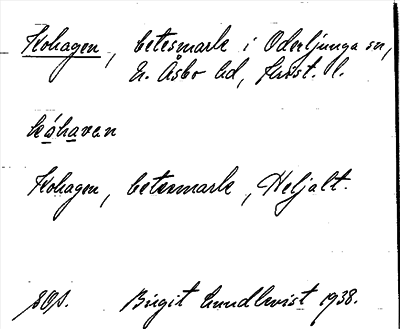 Kohagen, betesmark i Oderljunga sn,
N. Åsbo hd, Krist. l.
kóhavan
Kohagen, betesmark, Heljalt.
Birgit Lundkvist 1938.